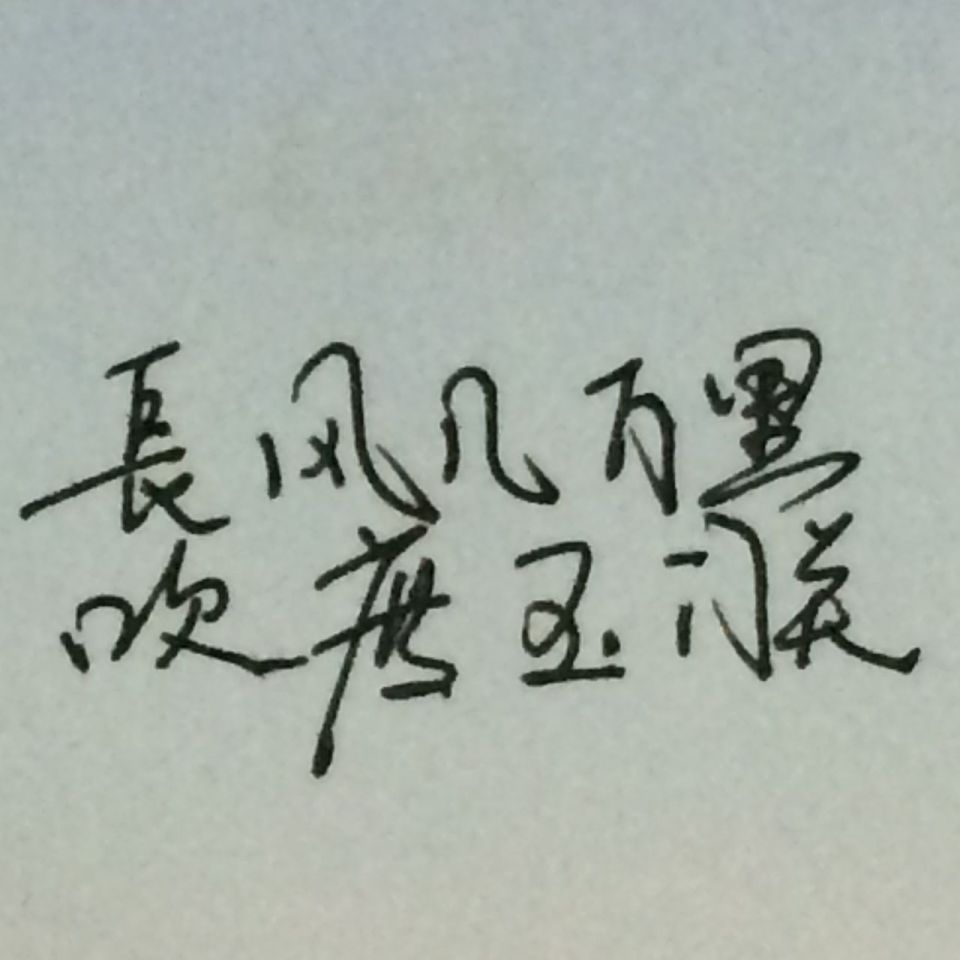 長风几万里
吹度玉门关